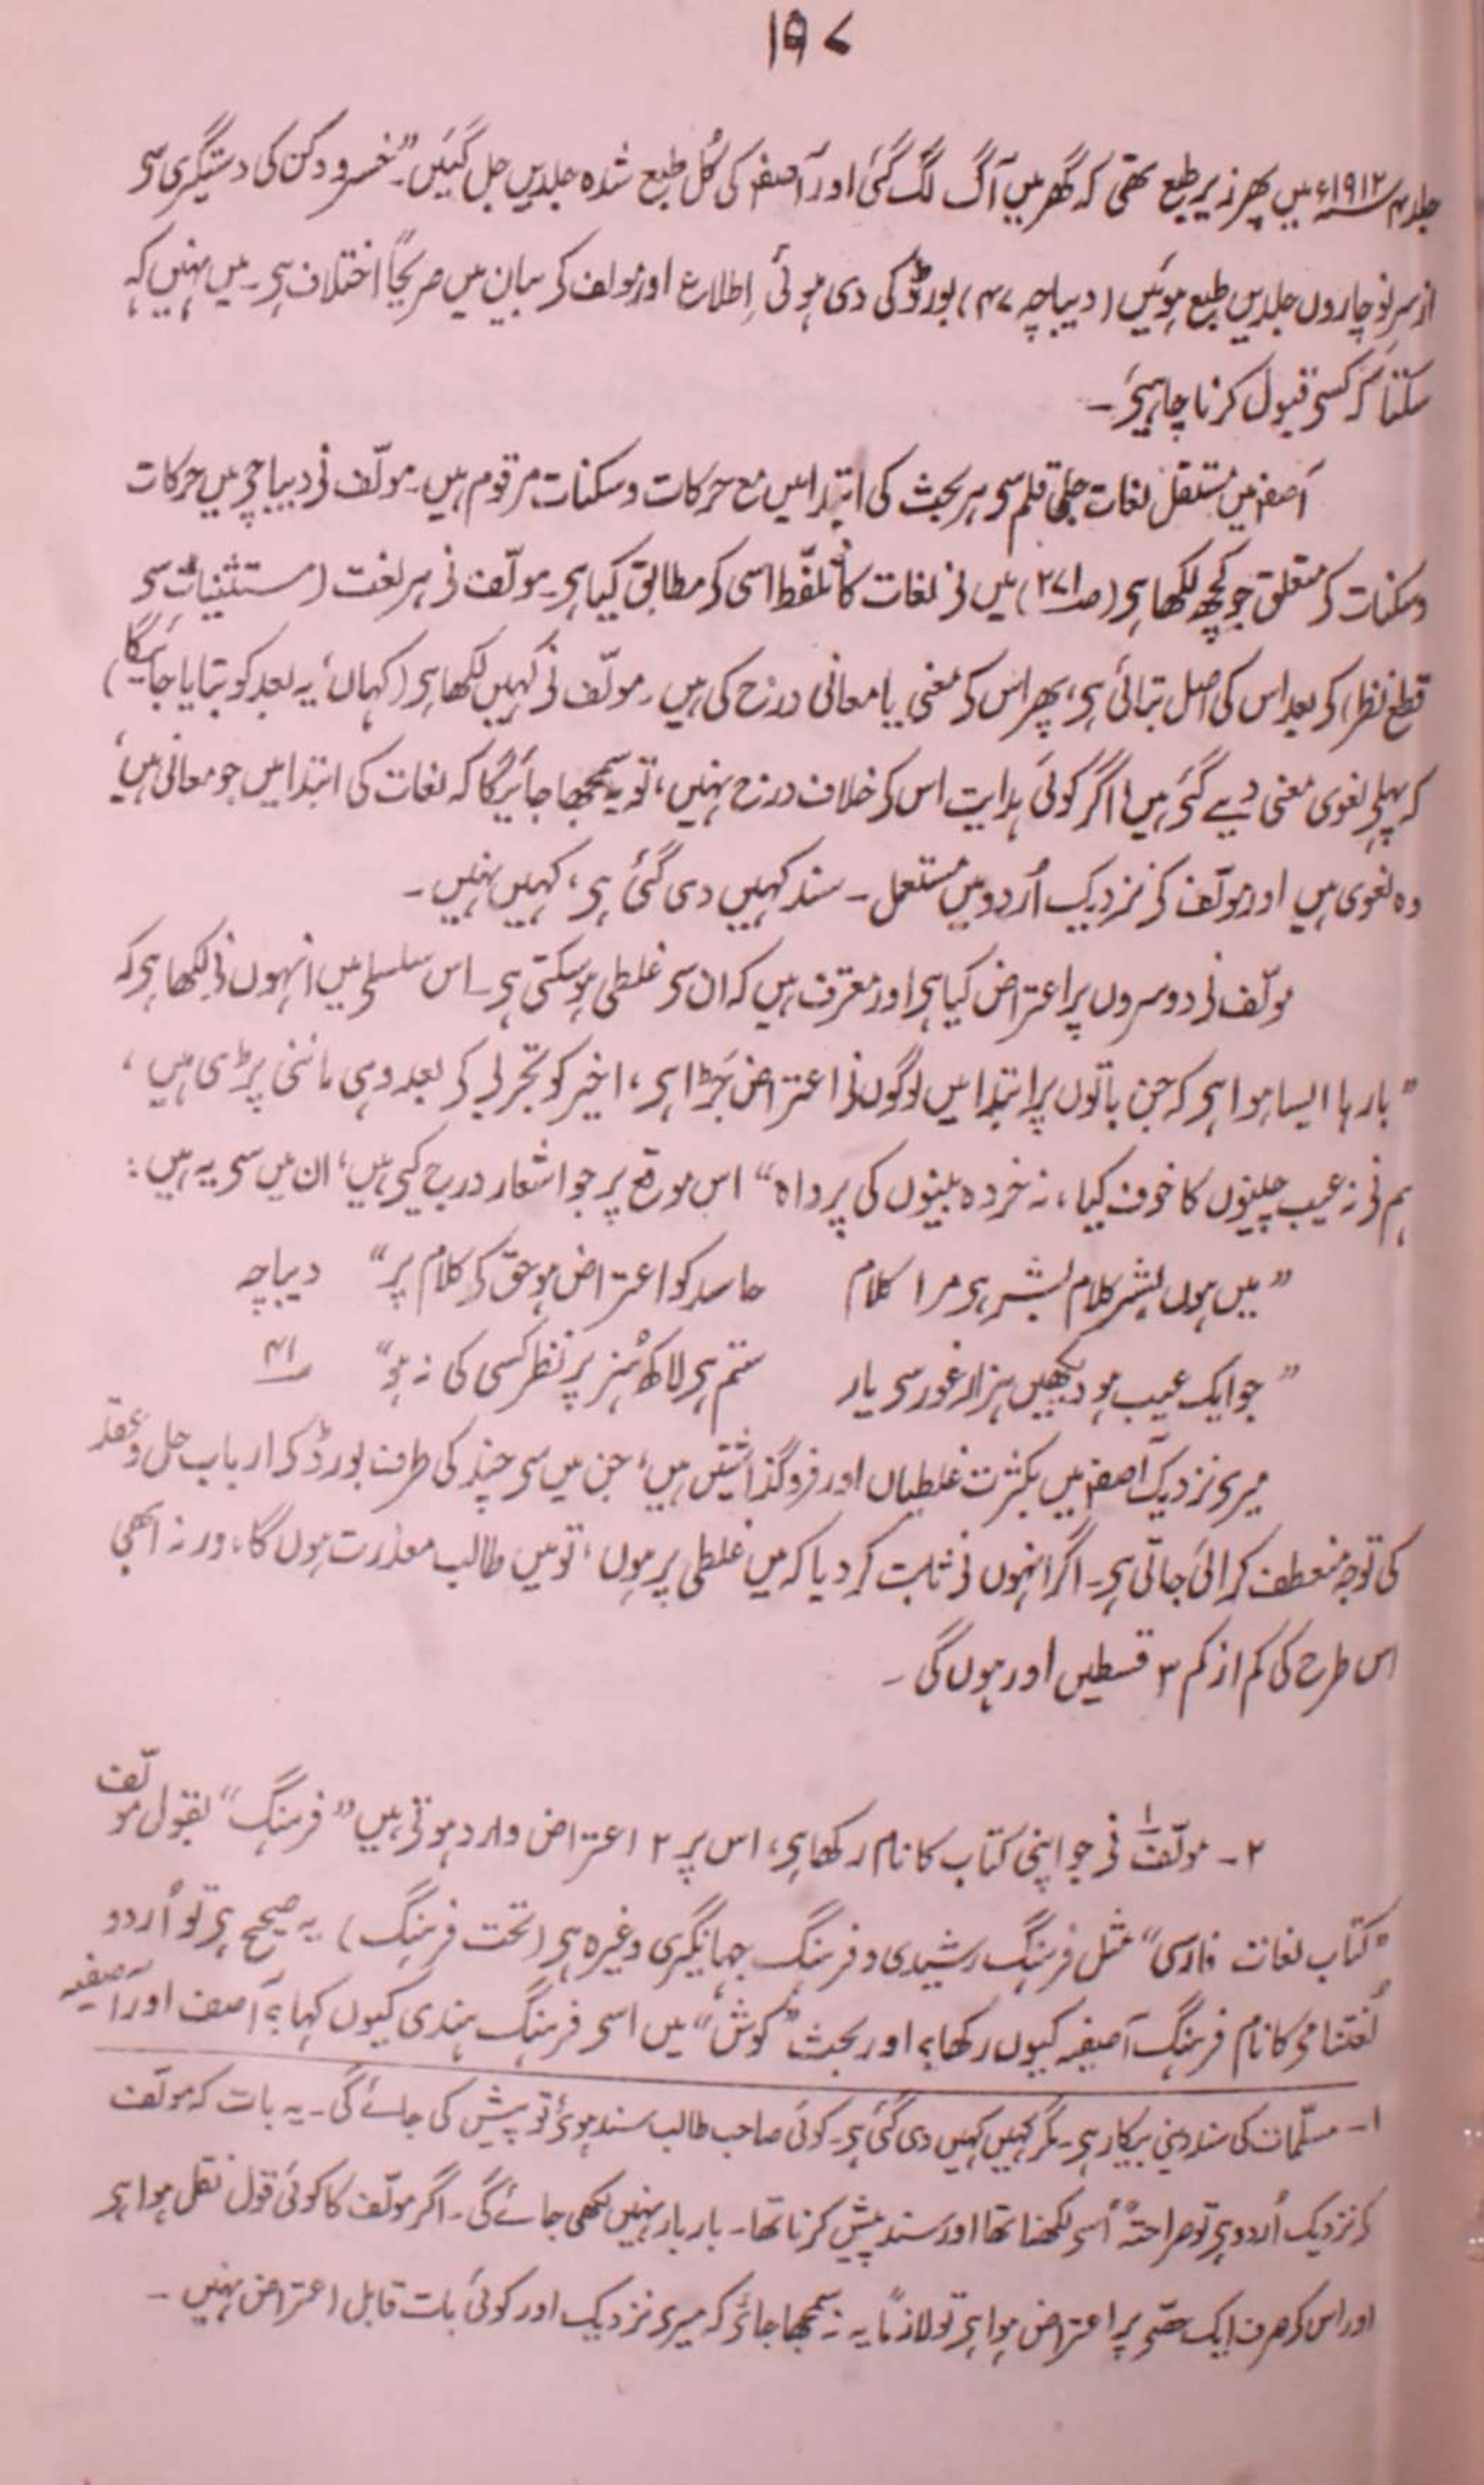 ۱۹۷
جلد ۴ ۱۹۱۲ء میں پھر زیر طبع تھی کہ گھر میں آگ لگ گئی اور آصفہ کی کُل طبع شدہ جلدیں جل گئیں"۔ خسرو دکن کی دستگیری سے
از سرِ نو چاروں جلدیں طبع ہوئیں (دیباچہ ۴۷) بورڈ کی دی ہوئی اِطلاع اور مولف کے بیان میں صریحاً اختلاف ہے۔ میں نہیں کہہ
سکتا کہ کسے قبول کرنا چاہیے۔
آصفہ میں مستقل لغات جلی قلم سے ہر بحث کی ابتدا میں مع حرکات وسکنات مرقوم ہیں۔ مولّف نے دیباچے میں حرکات
وسکنات کے متعلق جو کچھ لکھا ہے (صـ ۲۷۱) میں نے لغات کا تلفّظ اسی کے مطابق کیا ہے۔ مولّف نے ہر لغت (مستثنیات سے
قطع نظر) کے بعد اس کی اصل بتائی ہے، پھر اس کے معنی یا معانی درج کیے ہیں۔ مولّف نے کہیں لکھا ہے (کہاں، یہ بعد کو بتایا جائیگا)
کہ پہلے لغوی معنی دیے گئے ہیں، اگر کوئی ہدایت اس کے خلاف درج نہیں، تو یہ سمجھا جائیگا کہ لغات کی ابتدا میں جو معانی ہیں،
وہ لغوی ہیں اور مولّف کے نزدیک اُردو میں مستعمل۔ سند کہیں دی گئی ہے، کہیں نہیں۔
مولّف نے دوسروں پر اعتراض کیا ہے اور معترف ہیں کہ ان سے غلطی ہوسکتی ہے۔ اس سلسلے میں انہوں نے لکھا ہے کہ
"بارہا ایسا ہوا ہے کہ جن باتوں پر ابتدا میں لوگوں نے اعتراض جڑا ہے، اخیر کو تجربے کے بعد وہی ماننی پڑی ہیں،
ہم نے نہ عیب چینوں کا خوف کیا، نہ خردہ بینوں کی پرواہ" اس موقع پر جو اشعار درج کیے ہیں، ان میں سے یہ ہیں:
"میں ہوں بشر کلام بشر ہے مرا کلام    حاسد کو اعتراض ہو حق کے کلام پر"    دیباچہ
"جو ایک عیب ہو دیکھیں ہزار غور سے یار    ستم ہے لاکھ ہُنر پر نظر کسی کی نہ ہو"    صـ ۴۱
میرے نزدیک آصفہ میں بکثرت غلطیاں اور فروگذاشتیں ہیں، جن میں سے چند کی طرف بورڈ کے ارباب حل و عقد
کی توجہ منعطف کرائی جاتی ہے۔ اگر انہوں نے ثابت کر دیا کہ میں غلطی پر ہوں، تو میں طالب معذرت ہوں گا، ورنہ ابھی
اس طرح کی کم از کم ۳ قسطیں اور ہوں گی۔
۲۔ مولّف۱ نے جو اپنی کتاب کا نام رکھا ہے، اس پر ۲ اعتراض وارد ہوتے ہیں "فرہنگ" بقول مولّف
"کتاب لغات فارسی" مثل فرہنگ رشیدی و فرہنگ جہانگیری وغیرہ ہے (تحت فرہنگ) یہ صحیح ہے تو اُردو
لُغتنامے کا نام فرہنگ آصفیہ کیوں رکھا؟ اور بحث "کوش" میں اسے فرہنگ ہندی کیوں کہا؟ آصف اور آصفیہ
۱۔ مسلّمات کی سند دینی بیکار ہے۔ مگر کہیں کہیں دی گئی ہے۔ کوئی صاحب طالب سند ہوئے تو پیش کی جائے گی۔ یہ بات کہ مولّف
کے نزدیک اُردو ہے تو صراحتہً اُسے لکھنا تھا اور سند پیش کرنا تھا۔ بار بار نہیں لکھی جائے گی۔ اگر مولّف کا کوئی قول نقل ہوا ہے
اور اس کے صرف ایک حصّے پر اعتراض ہوا ہے تو لازماً یہ نہ سمجھا جائے کہ میرے نزدیک اور کوئی بات قابل اعتراض نہیں۔